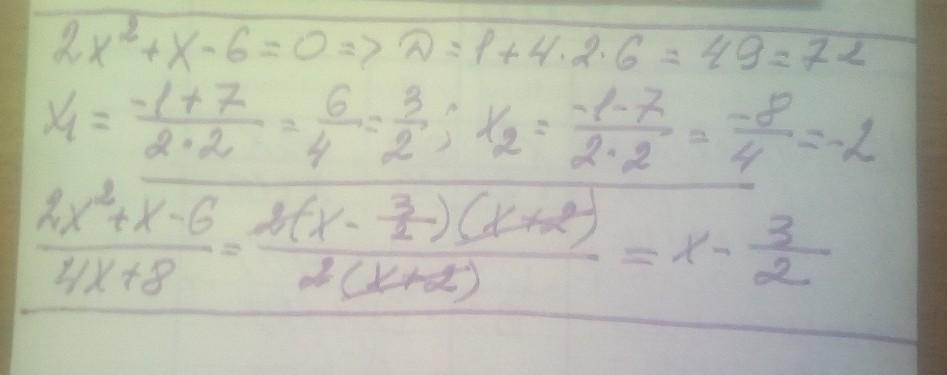 2x²+x-6=0=> D=1+4·2·6=49=7²
x₁ = (-1+7)/(2·2) = 6/4 = 3/2; x₂ = (-1-7)/(2·2) = -8/4 = -2
(2x²+x-6)/(4x+8) = (2(x-3/2)(x+2))/(2(x+2)) = x - 3/2